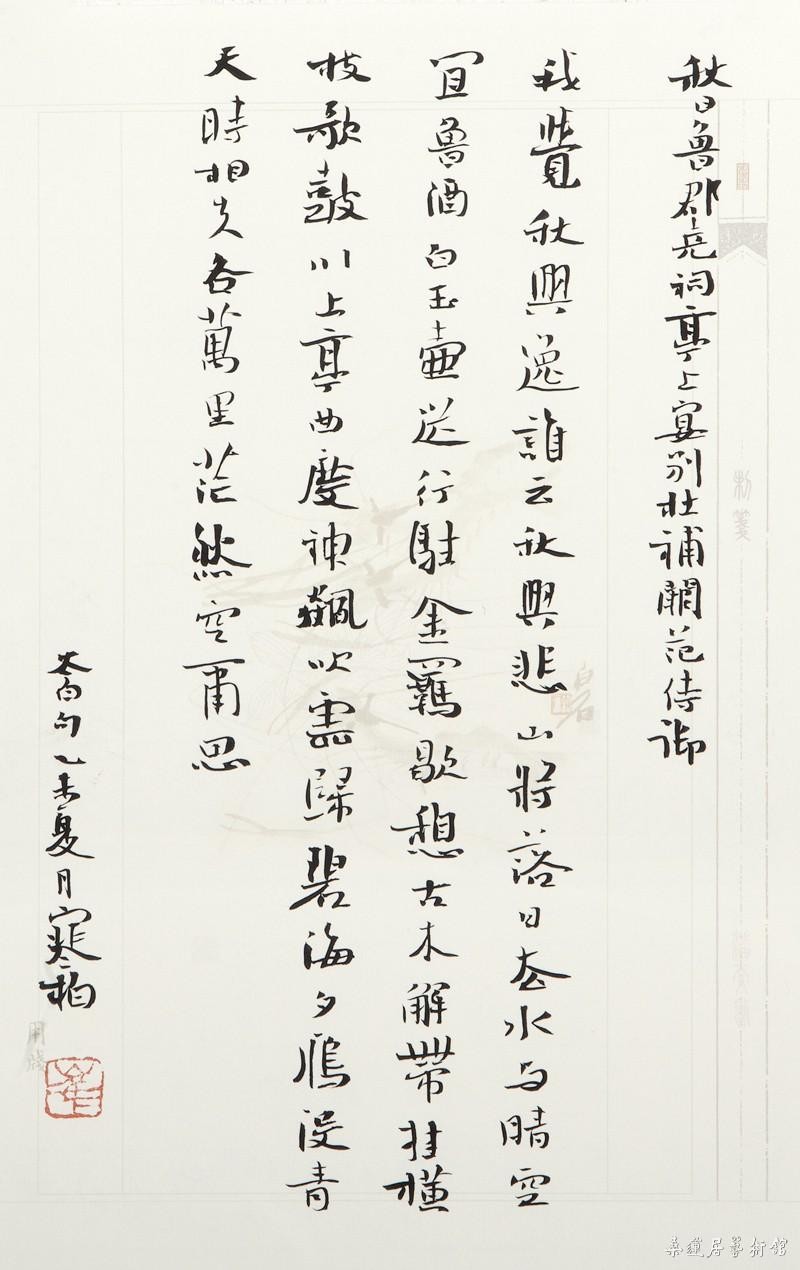 秋日魯郡堯祠亭上宴別杜補闕范侍御
我覺秋興逸誰云秋興悲山將落日去水与晴空
宜魯酒白玉壺送行駐金羈歇憩古木解帶挂橫
枝歌鼓川上亭曲度神飆吹雲歸碧海夕雁沒青
天時相失各萬里茫然空爾思
太白句乙未夏月寒柏
桑蓮居藝術館